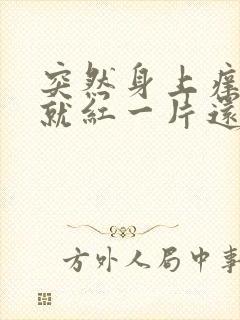 突然身上痒
就红一片还
方外人局中事